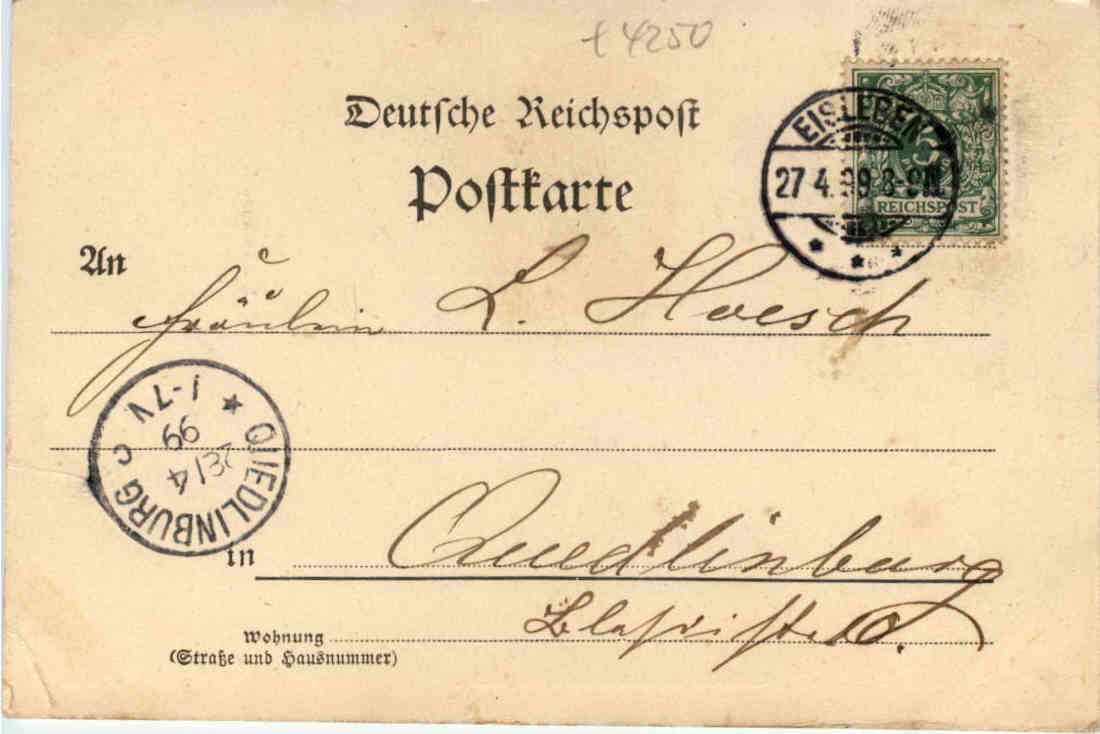 4250
Deutsche Reichspost
Postkarte
EISLEBEN
27.4.99.8-9N.
5
REICHSPOST
An
Fräulein L. Hoesch
QUEDLINBURG C
1-7V
99
28/4
in
Quedlinburg
Wohnung
(Straße und Hausnummer)